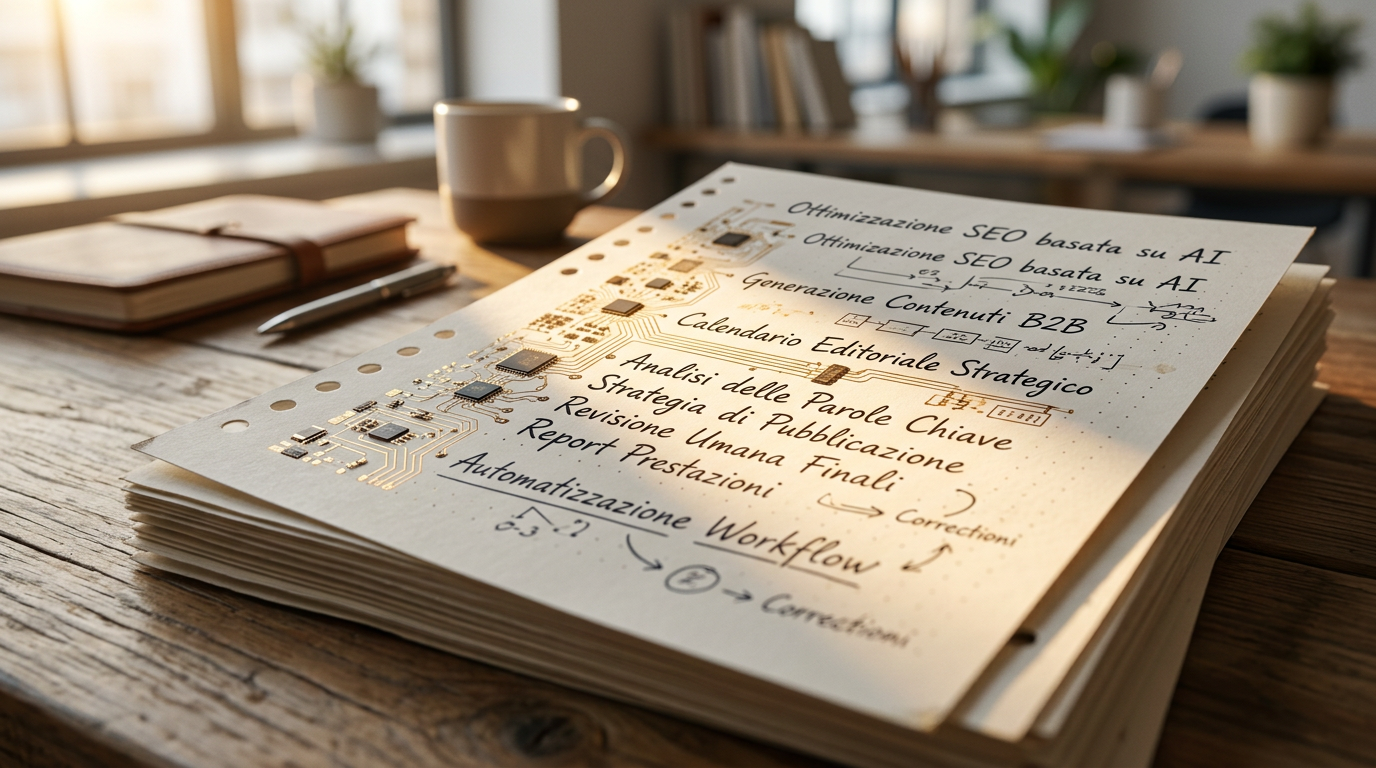 Ottimizzazione SEO basata su AI
Ottimizazione SEO basata su AI
Generazione Contenuti B2B
Calendario Editoriale Strategico
Analisi delle Parole Chiave
Strategia di Pubblicazione
Revisione Umana Finali
Report Prestazioni
Correctioni
Automatizzazione Workflow
Correctioni